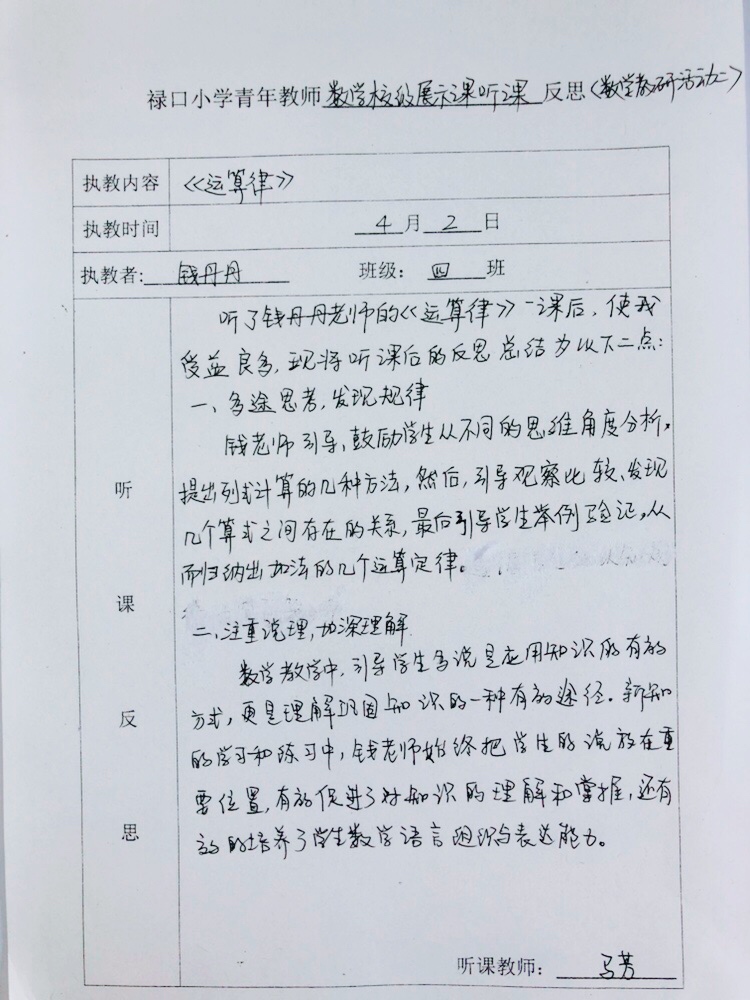 禄口小学青年教师 数学校级展示课听课 反思(数学教研活动二)
执教内容 《运算律》
执教时间 4 月 2 日
执教者: 钱丹丹 班级: 四 班
听课反思
听了钱丹丹老师的《运算律》一课后,使我
受益良多,现将听课后的反思总结为以下二点:
一、多途思考,发现规律
钱老师引导、鼓励学生从不同的思维角度分析,
提出列式计算的几种方法,然后,引导观察比较、发现
几个算式之间存在的关系,最后引导学生举例验证,从
而归纳出加法的几个运算定律。
二、注重说理,加深理解
数学教学中,引导学生多说是应用知识的有效
方式,更是理解巩固知识的一种有效途径。新知
的学习和练习中,钱老师始终把学生的说放在重
要位置,有效促进了对知识的理解和掌握,还有
效的培养了学生数学语言组织与表达能力。
听课教师: 马芳